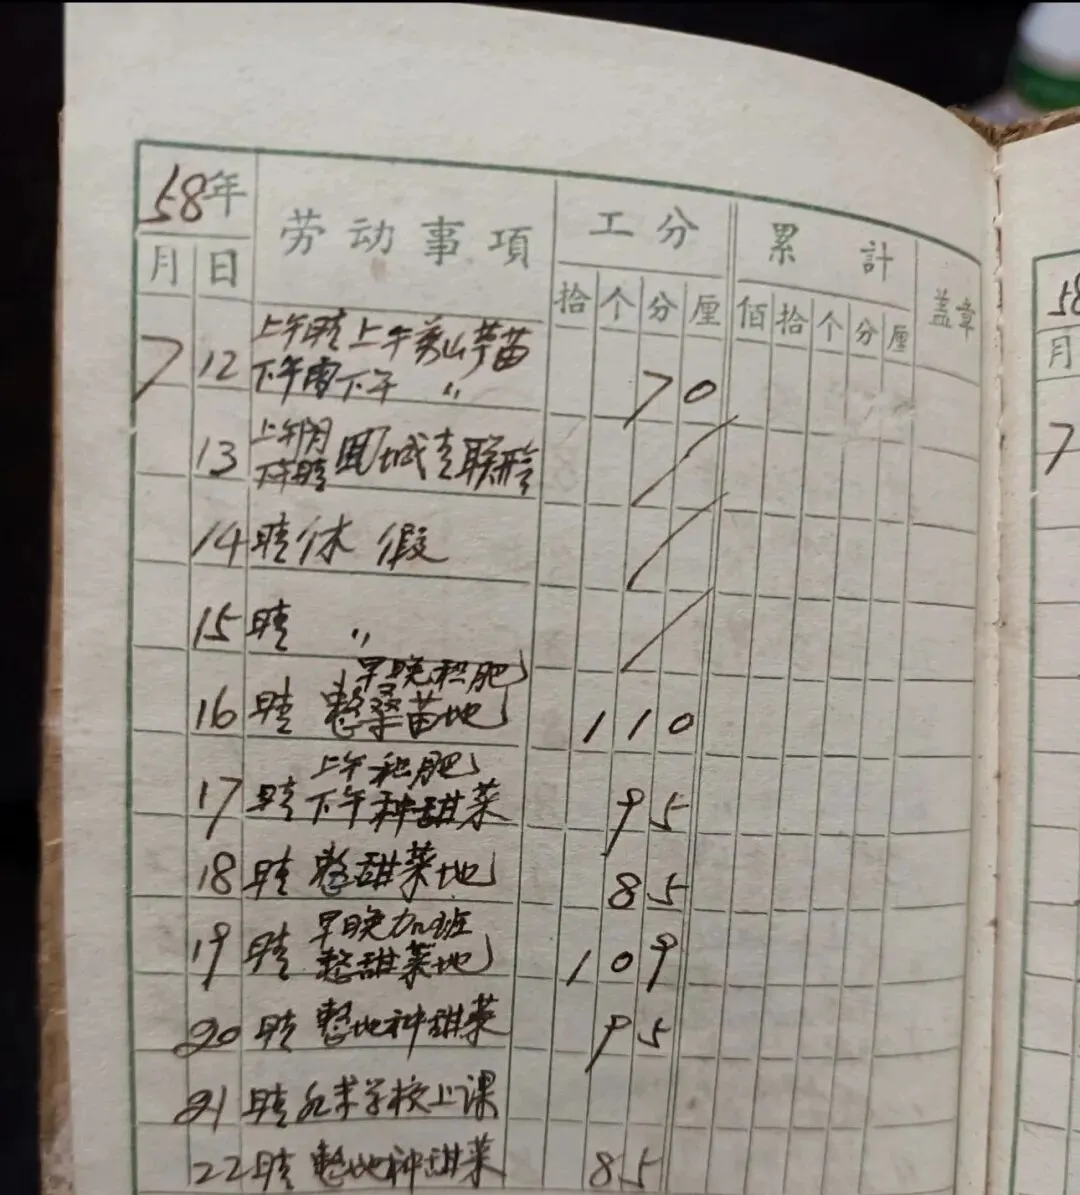 58年
劳动事項 工分 累計 盖章
月 日 拾 个 分 厘 佰 拾 个 分 厘
7 12 上午晴 上午 苗
下午雷 下午 〃 70
13 上午月
下午晴 回城
14 晴 休假
15 晴 〃
早晚积肥
16 晴 整桑苗地 110
上午积肥
17 晴 下午种甜菜 95
18 晴 整甜菜地 85
早晚加班
19 晴 整甜菜地 109
20 晴 整地种甜菜 95
21 晴 学校上课
22 晴 整地种甜菜 85
58
月
7